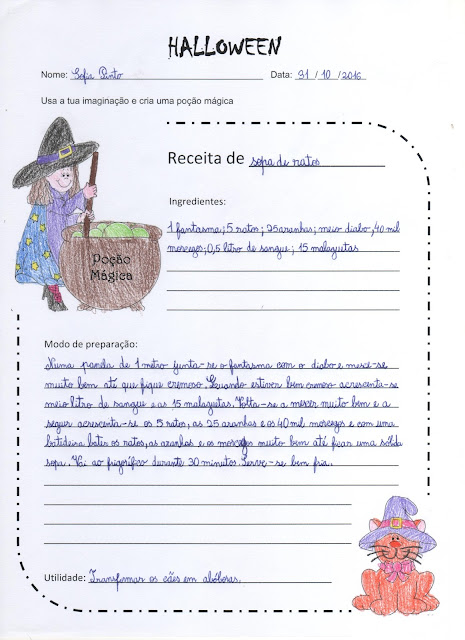 HALLOWEEN
Nome: Sofia Pinto Data: 31 / 10 / 2016
Usa a tua imaginação e cria uma poção mágica
Receita de sopa de ratos
Ingredientes:
1 fantasma; 5 ratos; 25 aranhas; meio diabo; 40 mil
morcegos; 0,5 litro de sangue; 15 malaguetas
Poção
Mágica
Modo de preparação:
Numa panela de 1 metro junta-se o fantasma com o diabo e mexe-se
muito bem até que fique cremoso. Quando estiver bem cremoso acrescenta-se
meio litro de sangue e as 15 malaguetas. Volta-se a mexer muito bem e a
seguir acrescenta-se os 5 ratos, as 25 aranhas e os 40 mil morcegos e com uma
batedeira bater os ratos, as aranhas e os morcegos muito bem até ficar uma sólida
sopa. Vai ao frigorífico durante 30 minutos. Serve-se bem fria.
Utilidade: Transformar os cães em abóboras.